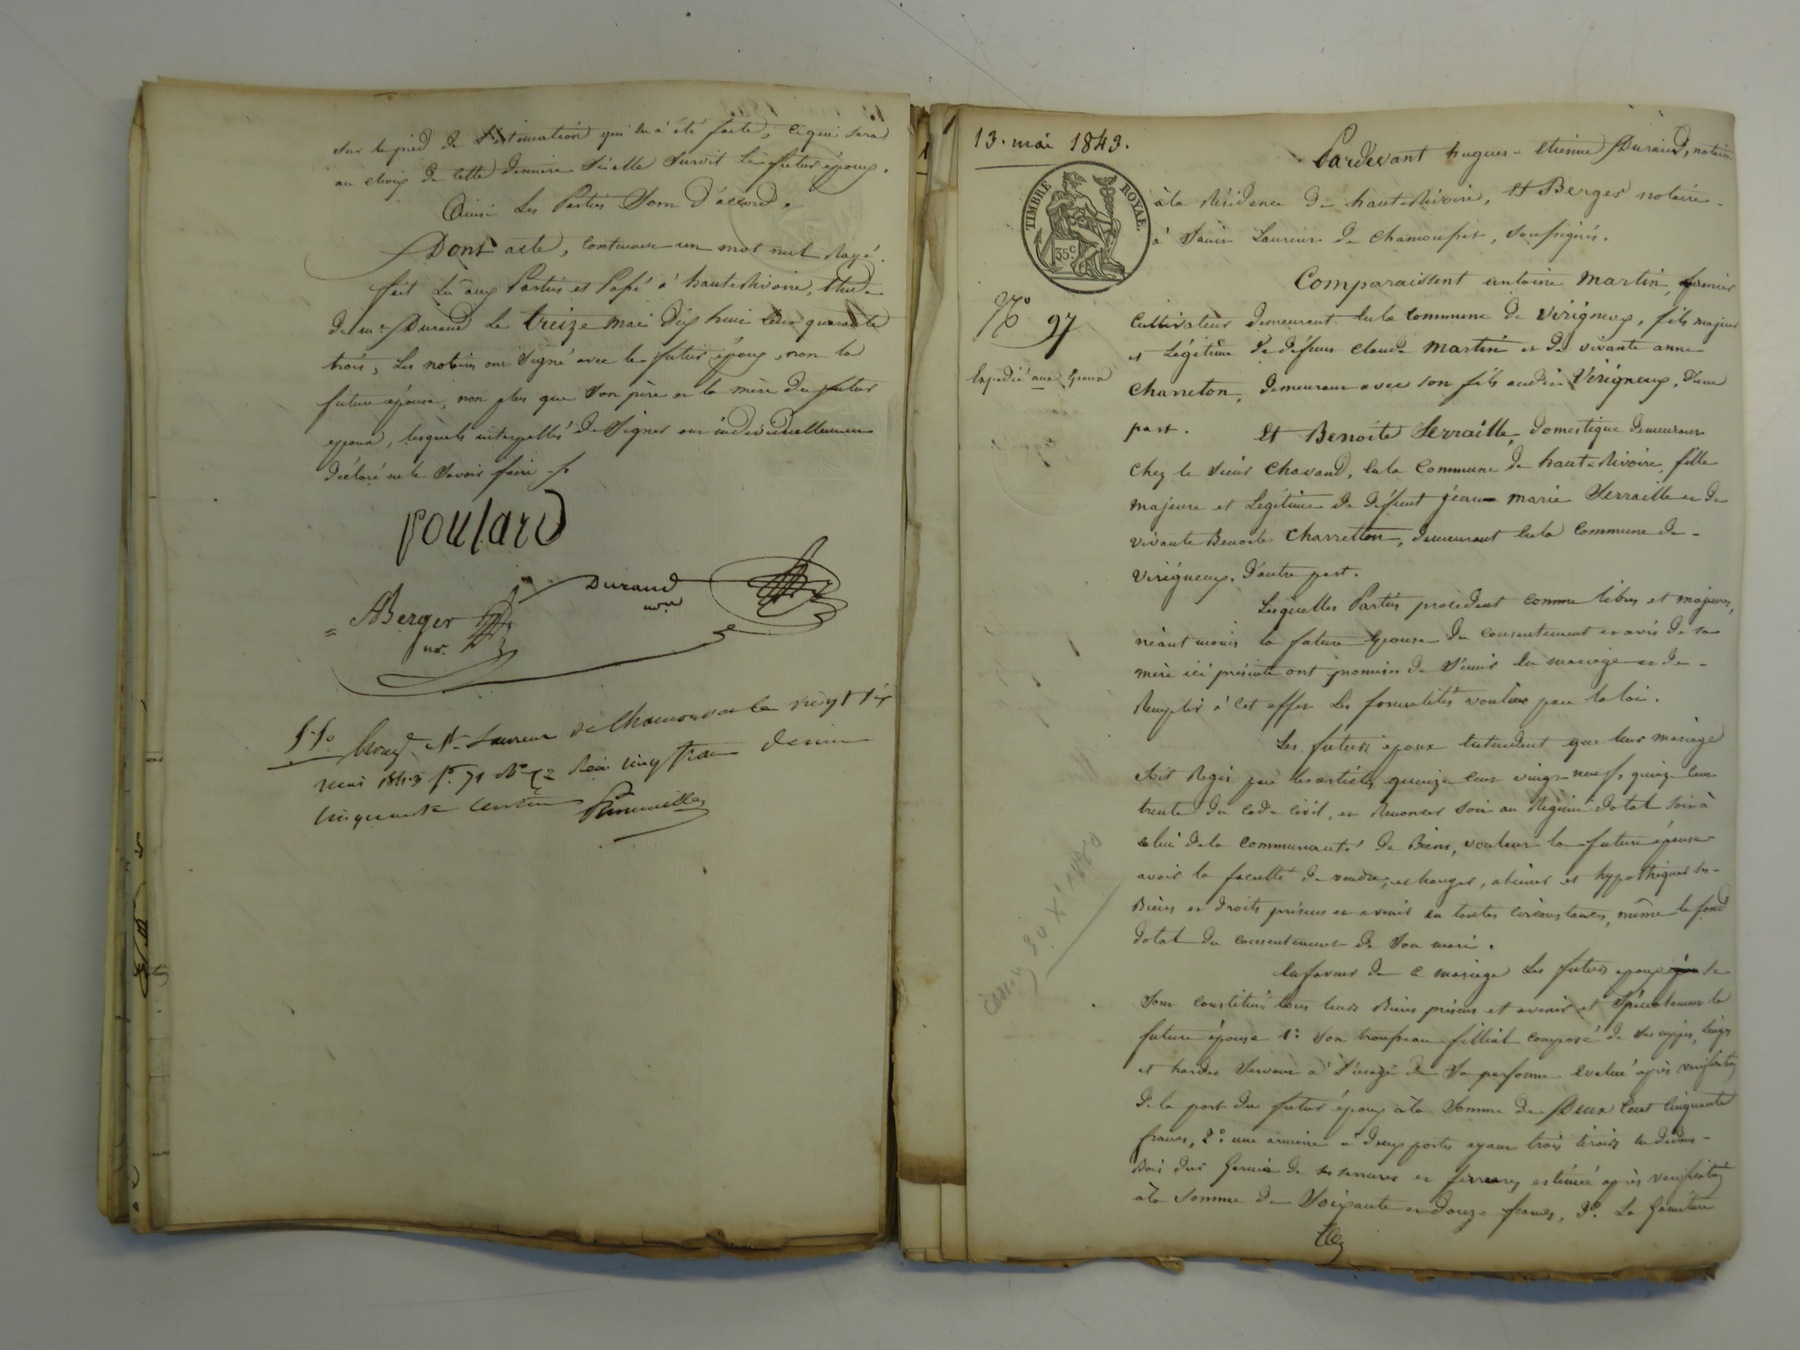 sur le pied de l'estimation qui en a été faite, ce qui sera
au choix de cette dernière si elle survit le futur époux.
Ainsi les Parties sont d'accord.
Dont acte, contenant un mot nul rayé.
fait lu aux Parties et Passé à haute Rivoire, Etude
de me Durand le treize mai dix huit cent quarante
trois, les notaires ont signé avec le futur époux, non la
future épouse, non plus que son père et la mère du futur
époux, lesquels interpellés de signer ont individuellement
déclaré ne le savoir faire
poulard
Durand
nore
ABerger
nore
Enregé St Laurent de Chamousset le vingt six
mai 1843 fo 71 Ro C 2 Reçu cinq francs
cinquante centimes
13. mai 1843.
TIMBRE ROYAL
35c
No 97
Expédié aux époux
Pardevant hugues-étienne Durand, notaire
à la Résidence de haute-Rivoire, Et Berger notaire
à Saint Laurent de Chamousset, soussignés.
Comparaissent antoine Martin, fermier
cultivateur demeurant en la commune de Virigneux, fils majeur
et légitime de défunt Claude Martin et de vivante anne
Charreton, demeurant avec son fils audit Virigneux, d'une
part. Et Benoîte Serraille, domestique demeurant
chez le sieur Chavand, en la commune de haute-Rivoire, fille
majeure et légitime de défunt jean marie Serraille et de
vivante Benoite Charretton, demeurant en la commune de
Virigneux, d'autre part.
Lesquelles Parties procédant comme libres et majeures,
néantmoins la future épouse du consentement et avis de sa
mère ici présente ont promis de s'unir en mariage et de
Remplir à cet effet les formalités voulues par la loi.
Les futurs époux entendent que leur mariage
soit Régis par les articles quinze cent vingt neuf, quinze cent
trente du code civil, et Renoncer soit au Régime dotal soit à
celui de la communauté de Biens, voulant la future épouse
avoir la faculté de vendre, échanger, aliéner et hypothéquer ses
Biens et droits présens et avenir en toutes circonstances, même le fond
dotal du consentement de son mari.
En faveur de ce mariage les futurs époux se
sont constitués tous leurs Biens présens et avenir et spécialement la
future épouse 1o son trousseau filliat composé de ses nippes, linges
et hardes servant à l'usage de sa personne évalué après vérification
de la part du futur époux à la somme de Deux Cent Cinquante
francs, 2o une armoire à deux portes ayant trois tiroirs en dedans
Bois dur garnie de ses serrures et ferrures estimée après vérification
à la somme de soixante et douze francs, 3o La garniture